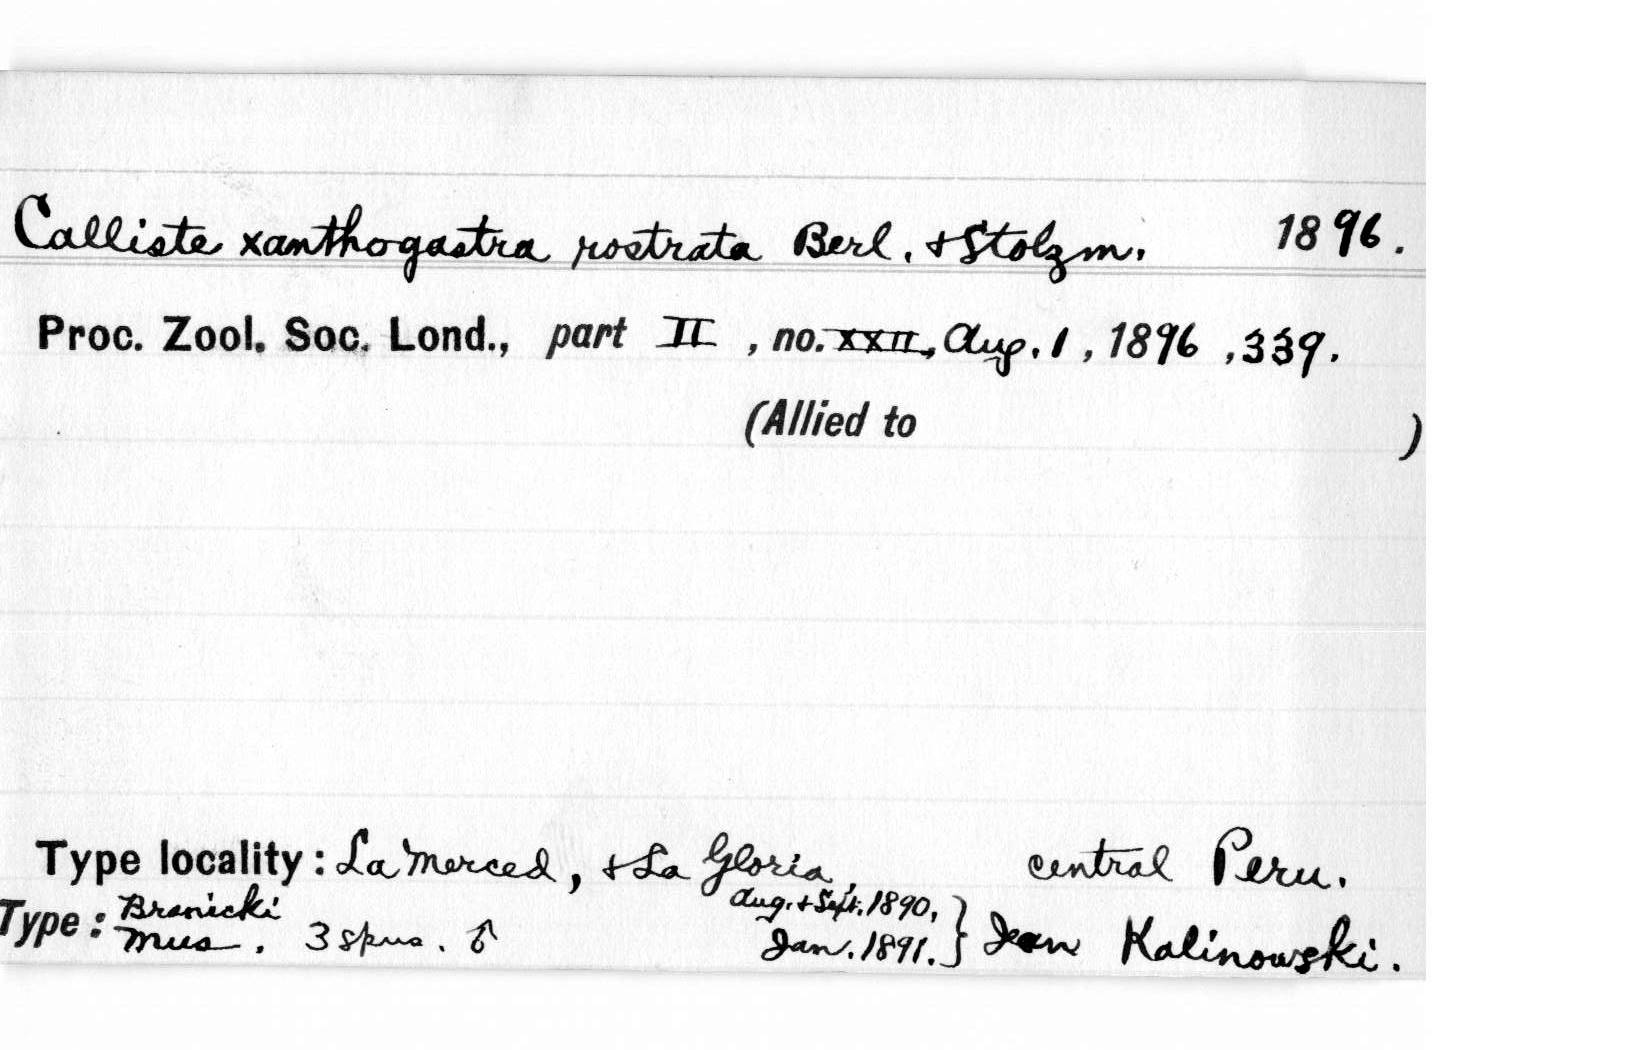 Calliste xanthogastra rostrata Berl. + Stolzm. 1896.
Proc. Zool. Soc. Lond., part II, no. XXII, Aug. 1, 1896, 339.
(Allied to )
Type locality: La Merced, + La Gloria, central Peru.
Type: Branicki Mus. 3 spns. ♂ Aug. + Sept. 1890, Jan. 1891. } Jean Kalinowski.